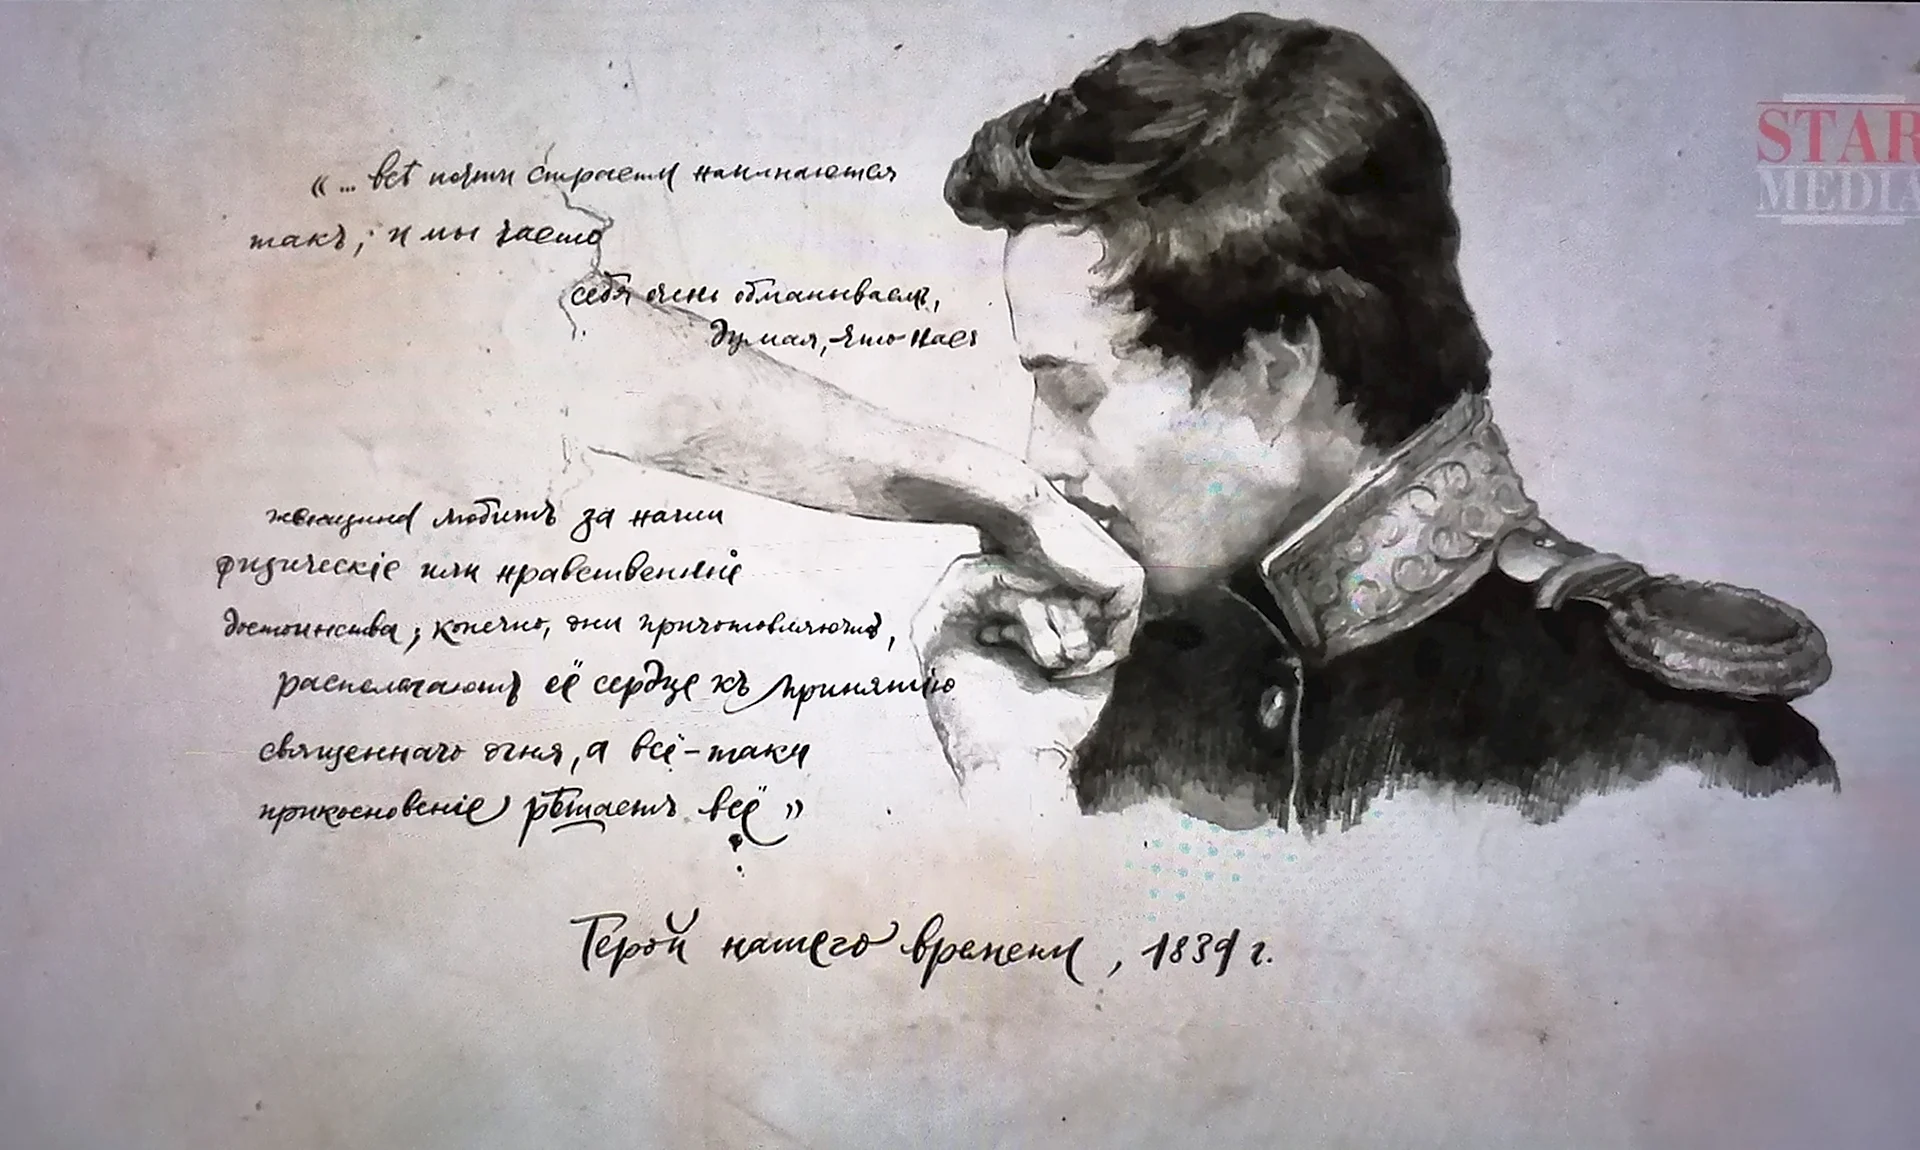 «... всѣ почти страсти начинаются
такъ; и мы часто
себя очень обманываемъ,
думая, что насъ
женщина любитъ за наши
физическіе или нравственные
достоинства; конечно, они приготовляютъ,
располагаютъ её сердце къ принятію
священнаго огня, а всё-таки
прикосновеніе рѣшаетъ всё»
Герой нашего времени, 1839 г.
STAR
MEDIA